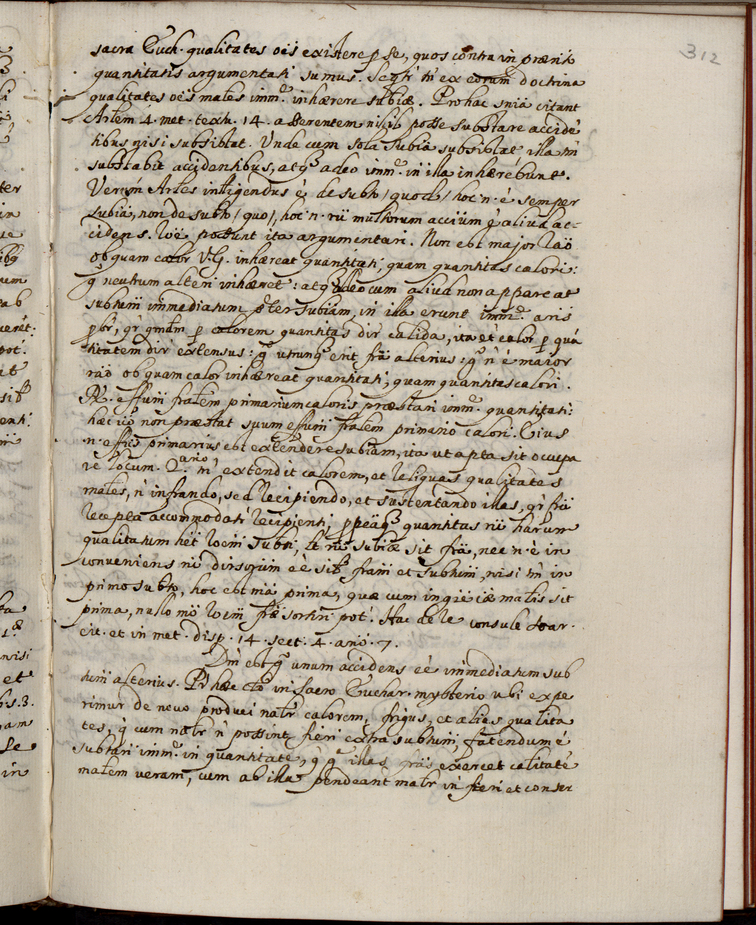 312
sacra Euch. qualitates oẽs existere p se, quos contra in præniõ
quantitatis argumentati sumus. Seqtr tñ ex eorum doctrina
qualitates oẽs males imm. inhærere subiæ. Pro hac sniã citant
Artem 4. met. textu. 14. asserentem nihil posse substare accidẽ
tibus nisi subsistat. Unde cum sola subia subsistat illa tñ
substabit accidentibus, atq adeo imm. in illa inhærebunt.
Verum Artes intlligendus ẽ de subto / quod / hoc n. ẽ semper
subia, non de subto / quo /, hoc n. rũ multorum acciũm ẽ aliud ac-
cidens. Loẽ possunt ita argumentari. Non est major rãõ
ob quam calor V.G. inhæreat quantitati, quam quantitas calori:
q neutrum alteri inhæret: atq adeo cum aliud non appareat
subtum immediatum præter subiam, in illa erunt imm.
pbr, qr qmdm p calorem quantitas dir calida, ita et calor p quã
titatem dir extensus: q utrumq erit frã alterius: q n ẽ maior
rãõ ob quam calor inhæreat quantitati, quam quantitas calori.
R. effum fralem primarium caloris præstari imm. quantitati:
hæc vº non præstat suum effum fralem primariõ calori. Eius
n. effus primarius est extendere subiam, ita ut apta sit occupa
re locum. 2.º añº tñ extendit calorem, et reliquas qualitates
males, ñ infrando, sed recipiendo, et sustentando illas, qr frã
recepta accommodatr recipienti, ppeaq quantitas rũ harum
qualitatum het roẽm subti, et rũ subiæ sit frã, nec n. ẽ in
conveniens rũ dirsorum ẽẽ sit fram et subtum, nisi tñ in
primo subto, hoc est mã prima, quæ cum in gñe cãæ malis sit
prima, nullo mõ roẽm fræ sortiri pot. Hac de re consule Soar.
cit. et in met. disp. 14. sect. 4. anõ. 7.
Dm est q unum accidens ẽẽ immediatum sub
tum alterius. Pr hæc in sacro Euchar. mysterio ubi expe
rimur de novo produci natr calorem, frigus, et alias qualita
tes, q cum natr ñ possint fieri extra subtum, fatendum ẽ
subtari imm. in quantitate, q q illas exercet calitatẽ
malem veram, cum ab illa pendeant matr in fieri et conser